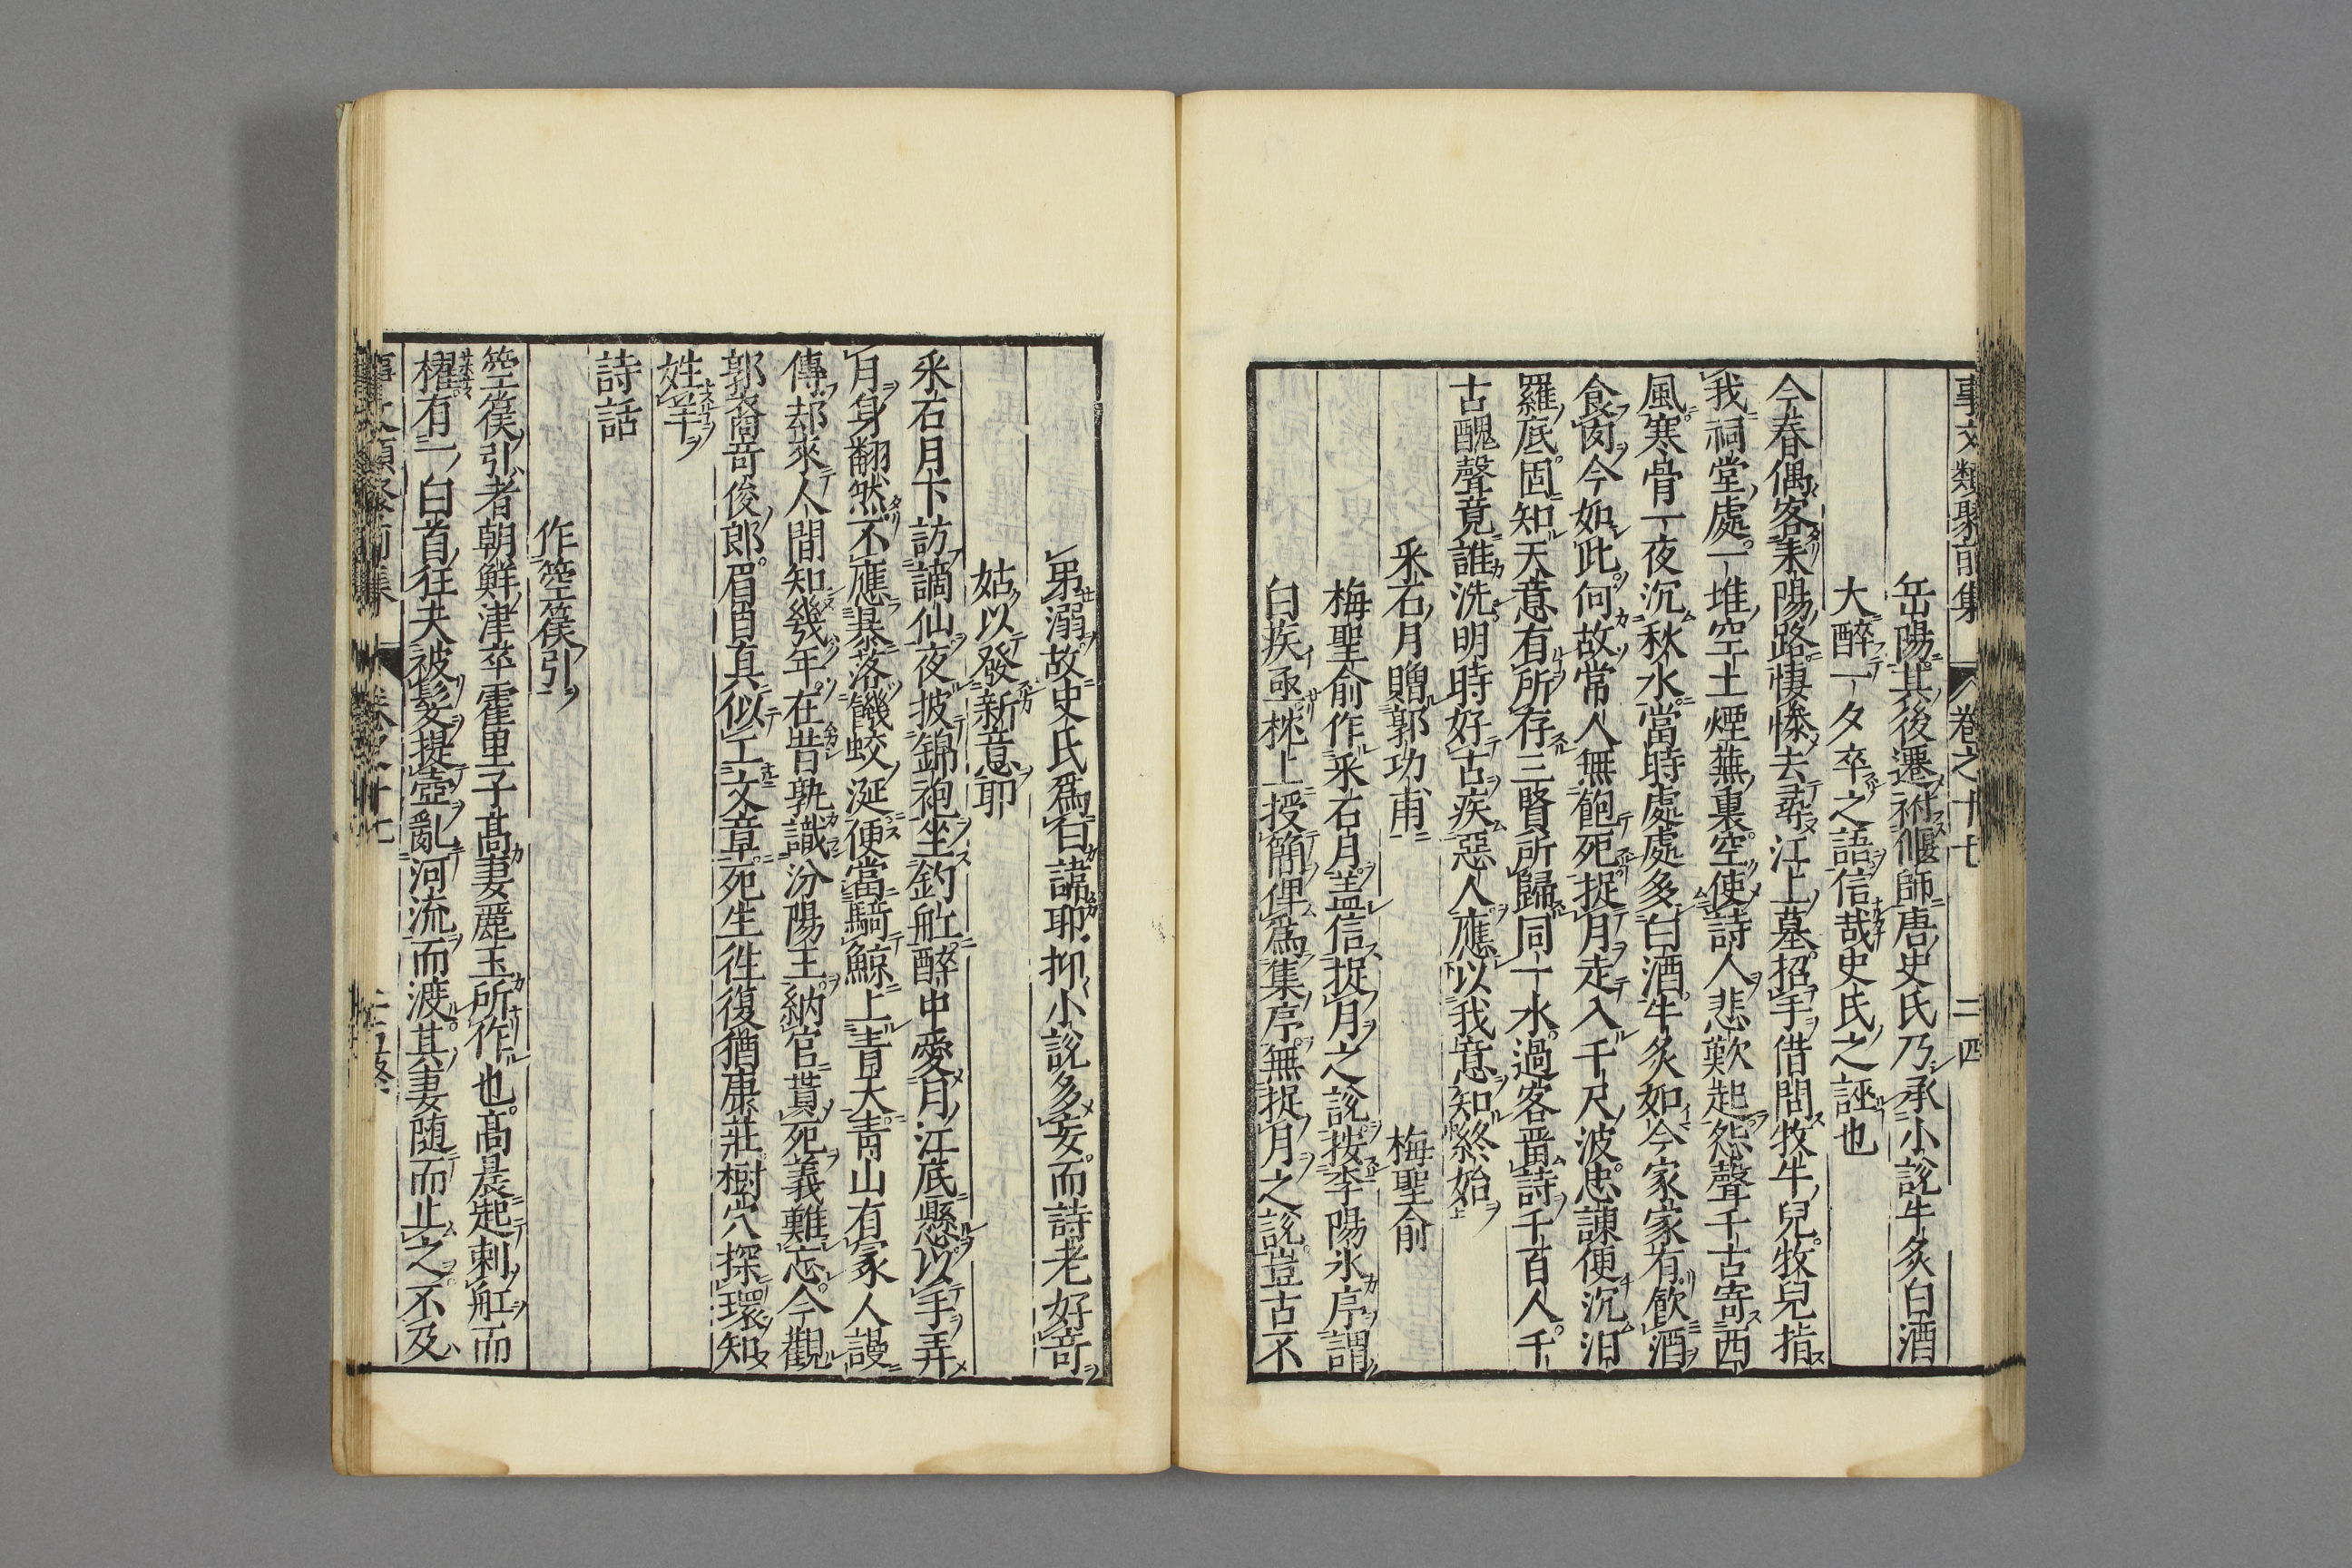 事文類聚前集 卷之十七 二十四
岳陽其後遷祔偃師唐史氏乃承小說牛炙白酒
大醉一夕卒之語信哉史氏之誣也
今春偶客耒陽路悽慘去尋江上墓招手借問牧牛兒牧兒指
我祠堂處一堆空土煙蕪裏空使詩人悲歎起怨聲千古寄西
風寒骨一夜沉秋水當時處處多白酒牛炙如今家家有飲酒
食肉今如此何故常人無飽死捉月走入千尺波忠諫便沉汨
羅底固知天意有所存三賢所歸同一水過客畱詩千百人千
古醜聲竟誰洗明時好古疾惡人應以我意知終始
采石月贈郭功甫 梅聖俞
梅聖俞作采石月盖信捉月之說按李陽氷序謂
白疾亟枕上授簡俾爲集序無捉月之說豈古不
弔溺故史氏爲白諱耶抑小說多妄而詩老好奇
姑以發新意耶
采石月下訪謫仙夜披錦袍坐釣舩醉中愛月江底懸以手弄
月身翻然不應暴落饑蛟涎便當騎鯨上青天青山有冢人謾
傳却來人間知幾年在昔孰識汾陽王納官貰死義難忘今觀
郭裔奇俊郎眉目真似工文章死生徃復猶康莊樹穴探環知
姓羊
詩話
作箜篌引
箜篌引者朝鮮津卒霍里子高妻麗玉所作也高晨起刺舩而
櫂有一白首狂夫被髮提壺亂河流而渡其妻随而止之不及